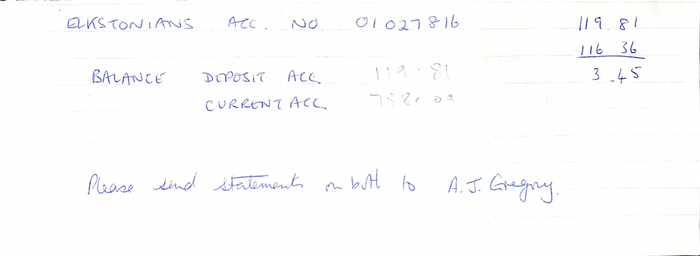 ELKSTONIANS ACC. NO. 01027816
119.81
116 36
3.45
BALANCE DEPOSIT ACC 119.81
CURRENT ACC. 758.09
Please send statements on both to A.J. Gregory.